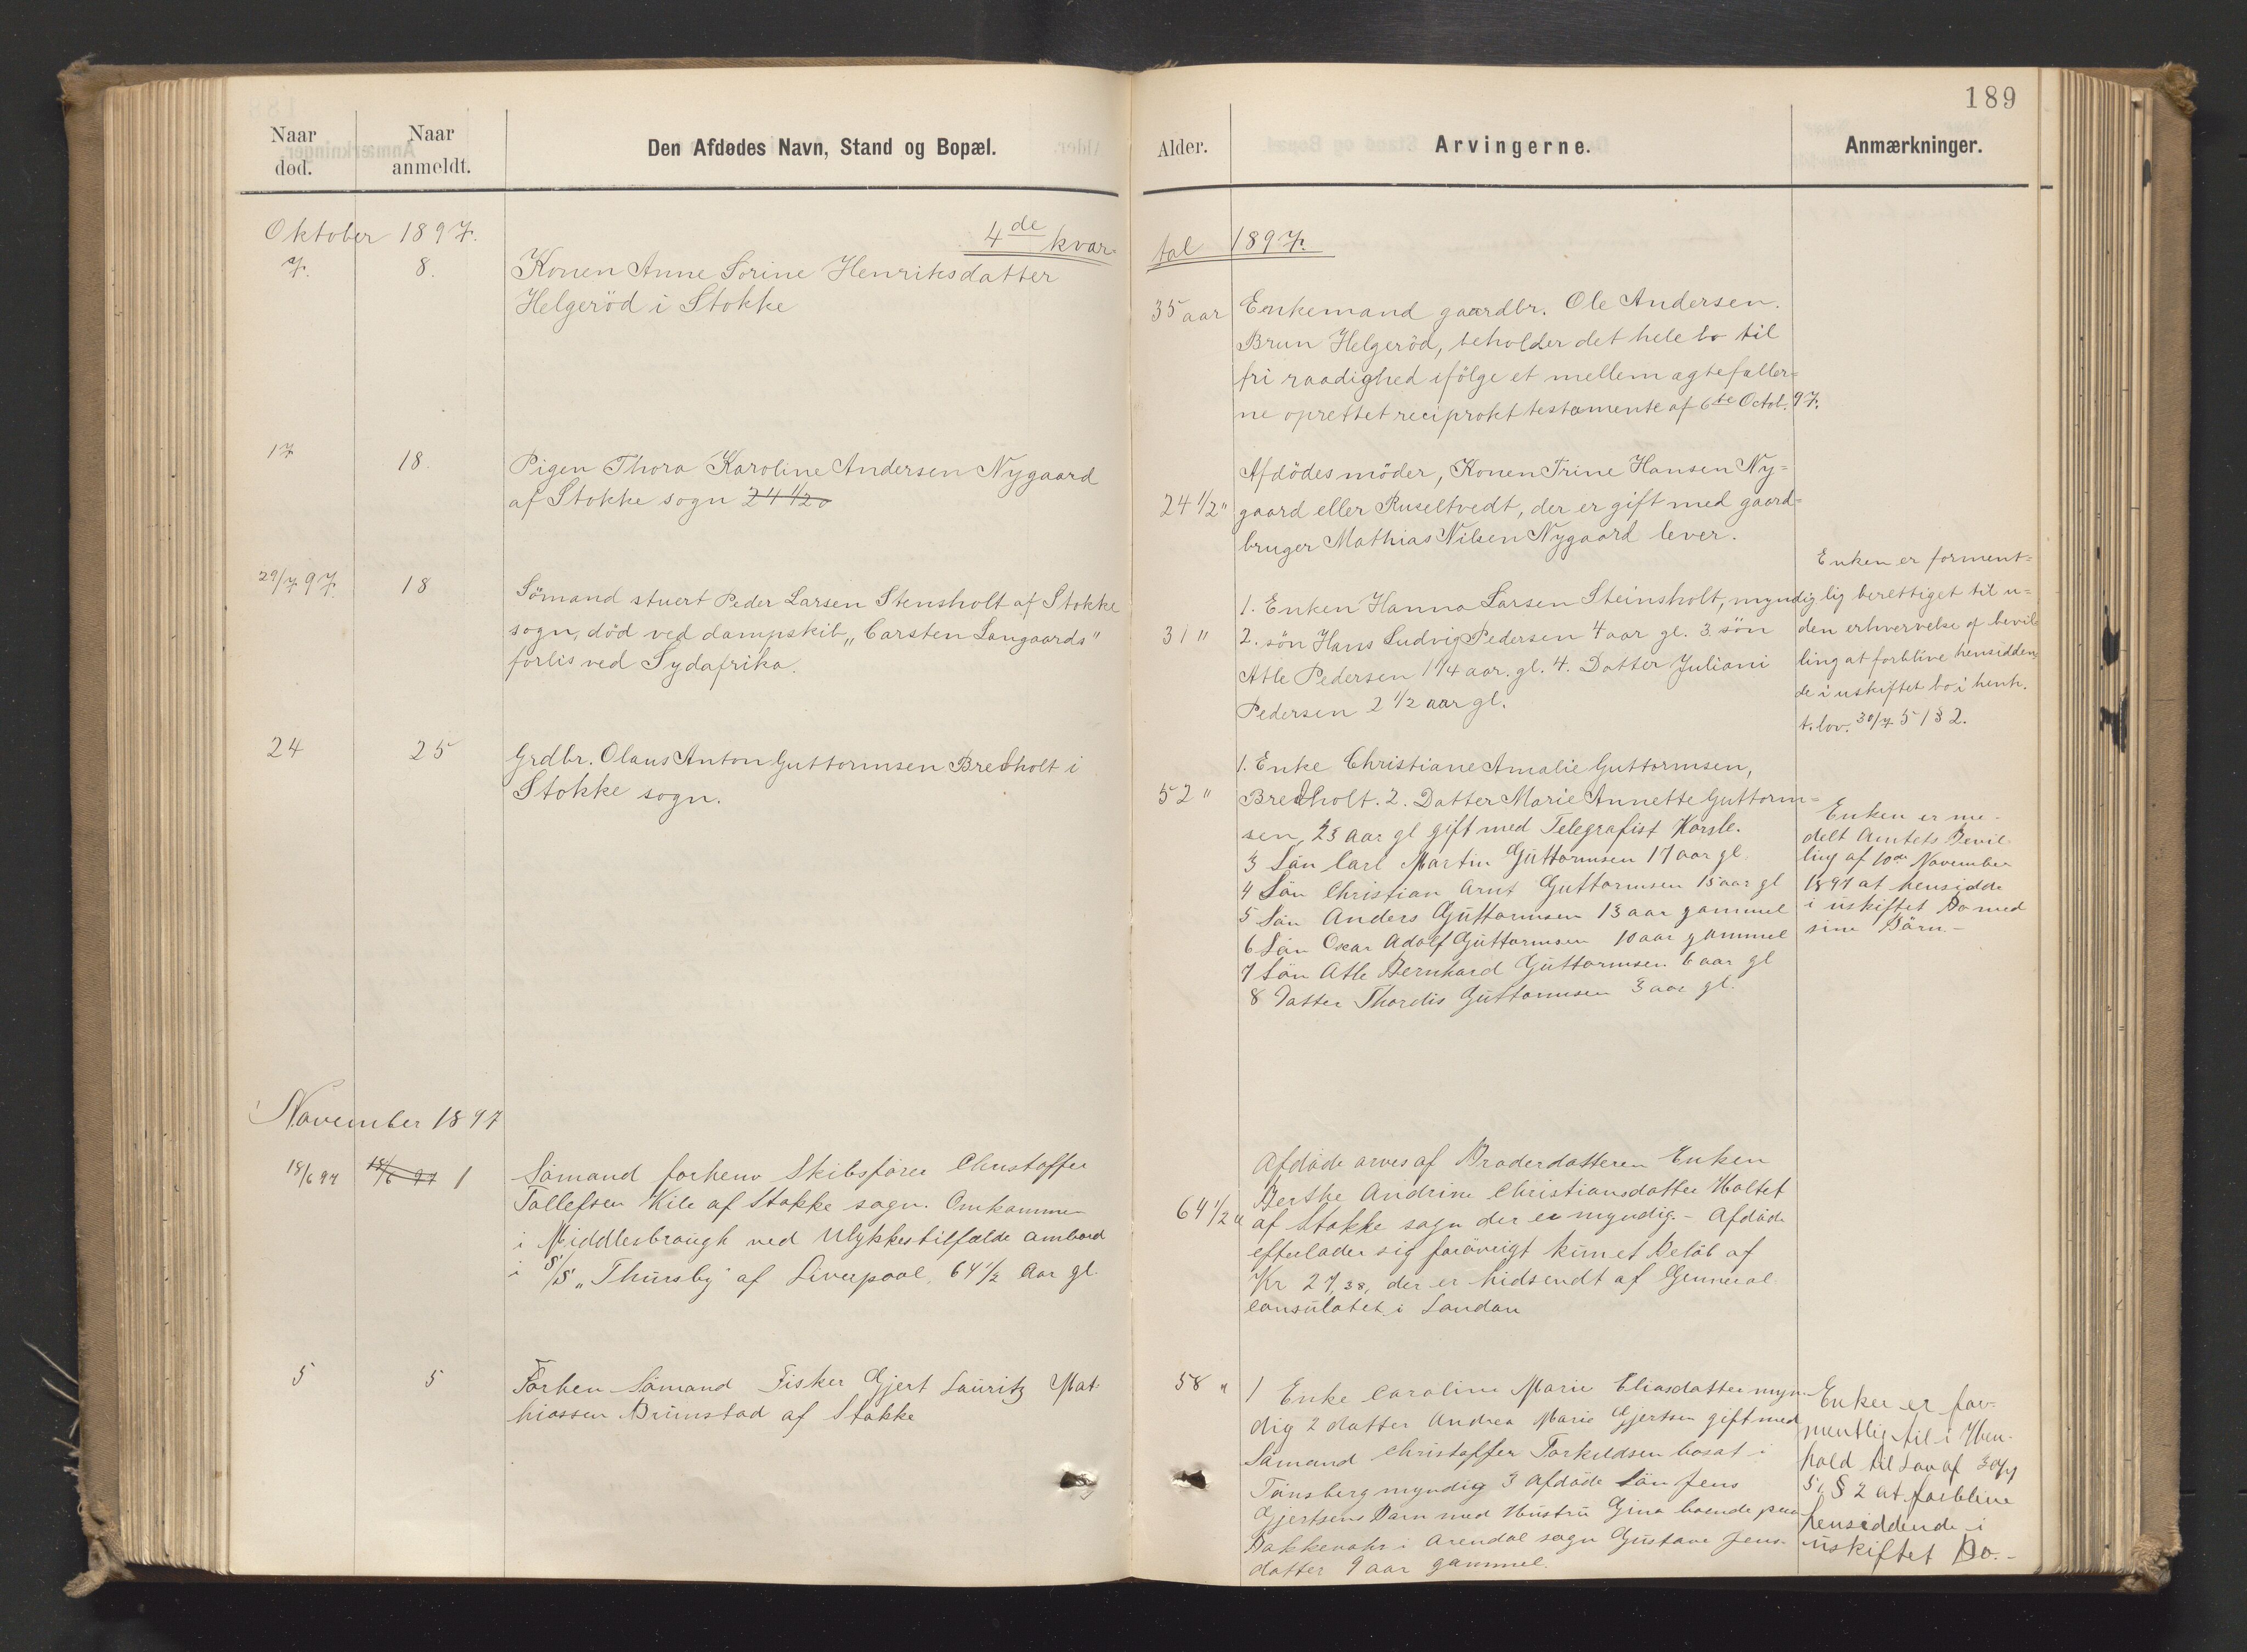 189
Naar død.
Naar anmeldt.
Den Afdødes Navn, Stand og Bopæl.
Alder.
Arvingerne.
Anmærkninger.
Oktober 1897.
4de kvar-
tal 1897.
7.
8.
Konen Anne Sorine Henriksdatter
Helgeröd i Stokke
35 aar
Enkemand gaardbr. Ole Andersen.
Brun Helgeröd, beholder det hele bo til
fri raadighed ifölge et mellem ægtefæller=
ne oprettet reciprokt testamente af 6te Octob. 97.
17
18.
Pigen Thora Karoline Andersen Nygaard
af Stokke sogn 24 1/2
24 1/2 "
Afdödes möder, Konen Trine Hansen Ny=
gaard eller Ruseltvedt, der er gift med gaard=
bruger Mathias Nilsen Nygaard lever.
29/7 97.
18
Sömand stuert Peder Larsen Stensholt af Stokke
sogn, död ved dampskib "Carsten Langaards"
forlis ved Sydafrika.
31 "
1. Enken Hanna Larsen Steinsholt, myndig
2. sön Hans Ludvig Pedersen 4 aar gl. 3. sön
Atle Pedersen 1 1/4 aar. gl. 4. Datter Juliani
Pedersen 2 1/2 aar gl.
Enken er forment=
lig berettiget til u=
den erhvervelse af bevil=
ling at forblive hensidden=
de i uskiftet bo i henh.
t. lov. 30/7 51 § 2.
24
25
Grdbr. Olaus Anton Guttormsen Bredholt i
Stokke sogn.
52 "
1. Enke Christiane Amalie Guttormsen,
Bredholt. 2. Datter Marie Annette Guttorm=
sen, 23 aar gl gift med Telegrafist
3 Sön Carl Martin Guttormsen 17 aar gl.
4 Sön Christian Arnt Guttormsen 15 aar gl
5 Sön Anders Guttormsen 13 aar gammel
6 Sön Oscar Adolf Guttormsen 10 aar gammel
7 Sön Atle Bernhard Guttormsen 6 aar gl
8 Datter Thordis Guttormsen 3 aar gl.
Enken er me-
delt Amtets Bevil-
ling af 10de November
1897 at hensidde
i uskiftet Bo med
sine Börn. -
November 1897
18/6 97
18/6 97 1
Sömand forhenv Skibsförer Christoffer
Tollefsen Kile af Stokke sogn. Omkommen
i Middlesbrough ved Ulykkestilfælde ombord
i S/S "Thursby" af Liverpool, 64 1/2 Aar gl.
64 1/2 "
Afdöde arves af Broderdatteren Enken
Berthe Andrine Christiansdatter Holtet
af Stokke sogn der er myndig. - Afdöde
efterlader sig forövrigt kun et Belöb af
Kr 27,38, der er hidsendt af General
consulatet i London
5
5
Forhen Sömand Fisker Gjert Lauritz Mat-
hiassen Brunstad af Stokke
58 "
1 Enke Caroline Marie Eliasdatter myn-
dig 2 datter Andrea Marie Gjertsen gift med
Sömand Christoffer Torkildsen bosat i
Tönsberg myndig 3 Afdöde Sön Jens
Gjertsens Barn med Hustru Gina boende paa
i Arendal sogn Gustave Jens-
datter 9 aar gammel.
Enken er for-
mentlig til i Hen-
hold til Lov af 30/7
51 § 2 at forblive
hensiddende i
uskiftet Bo. -